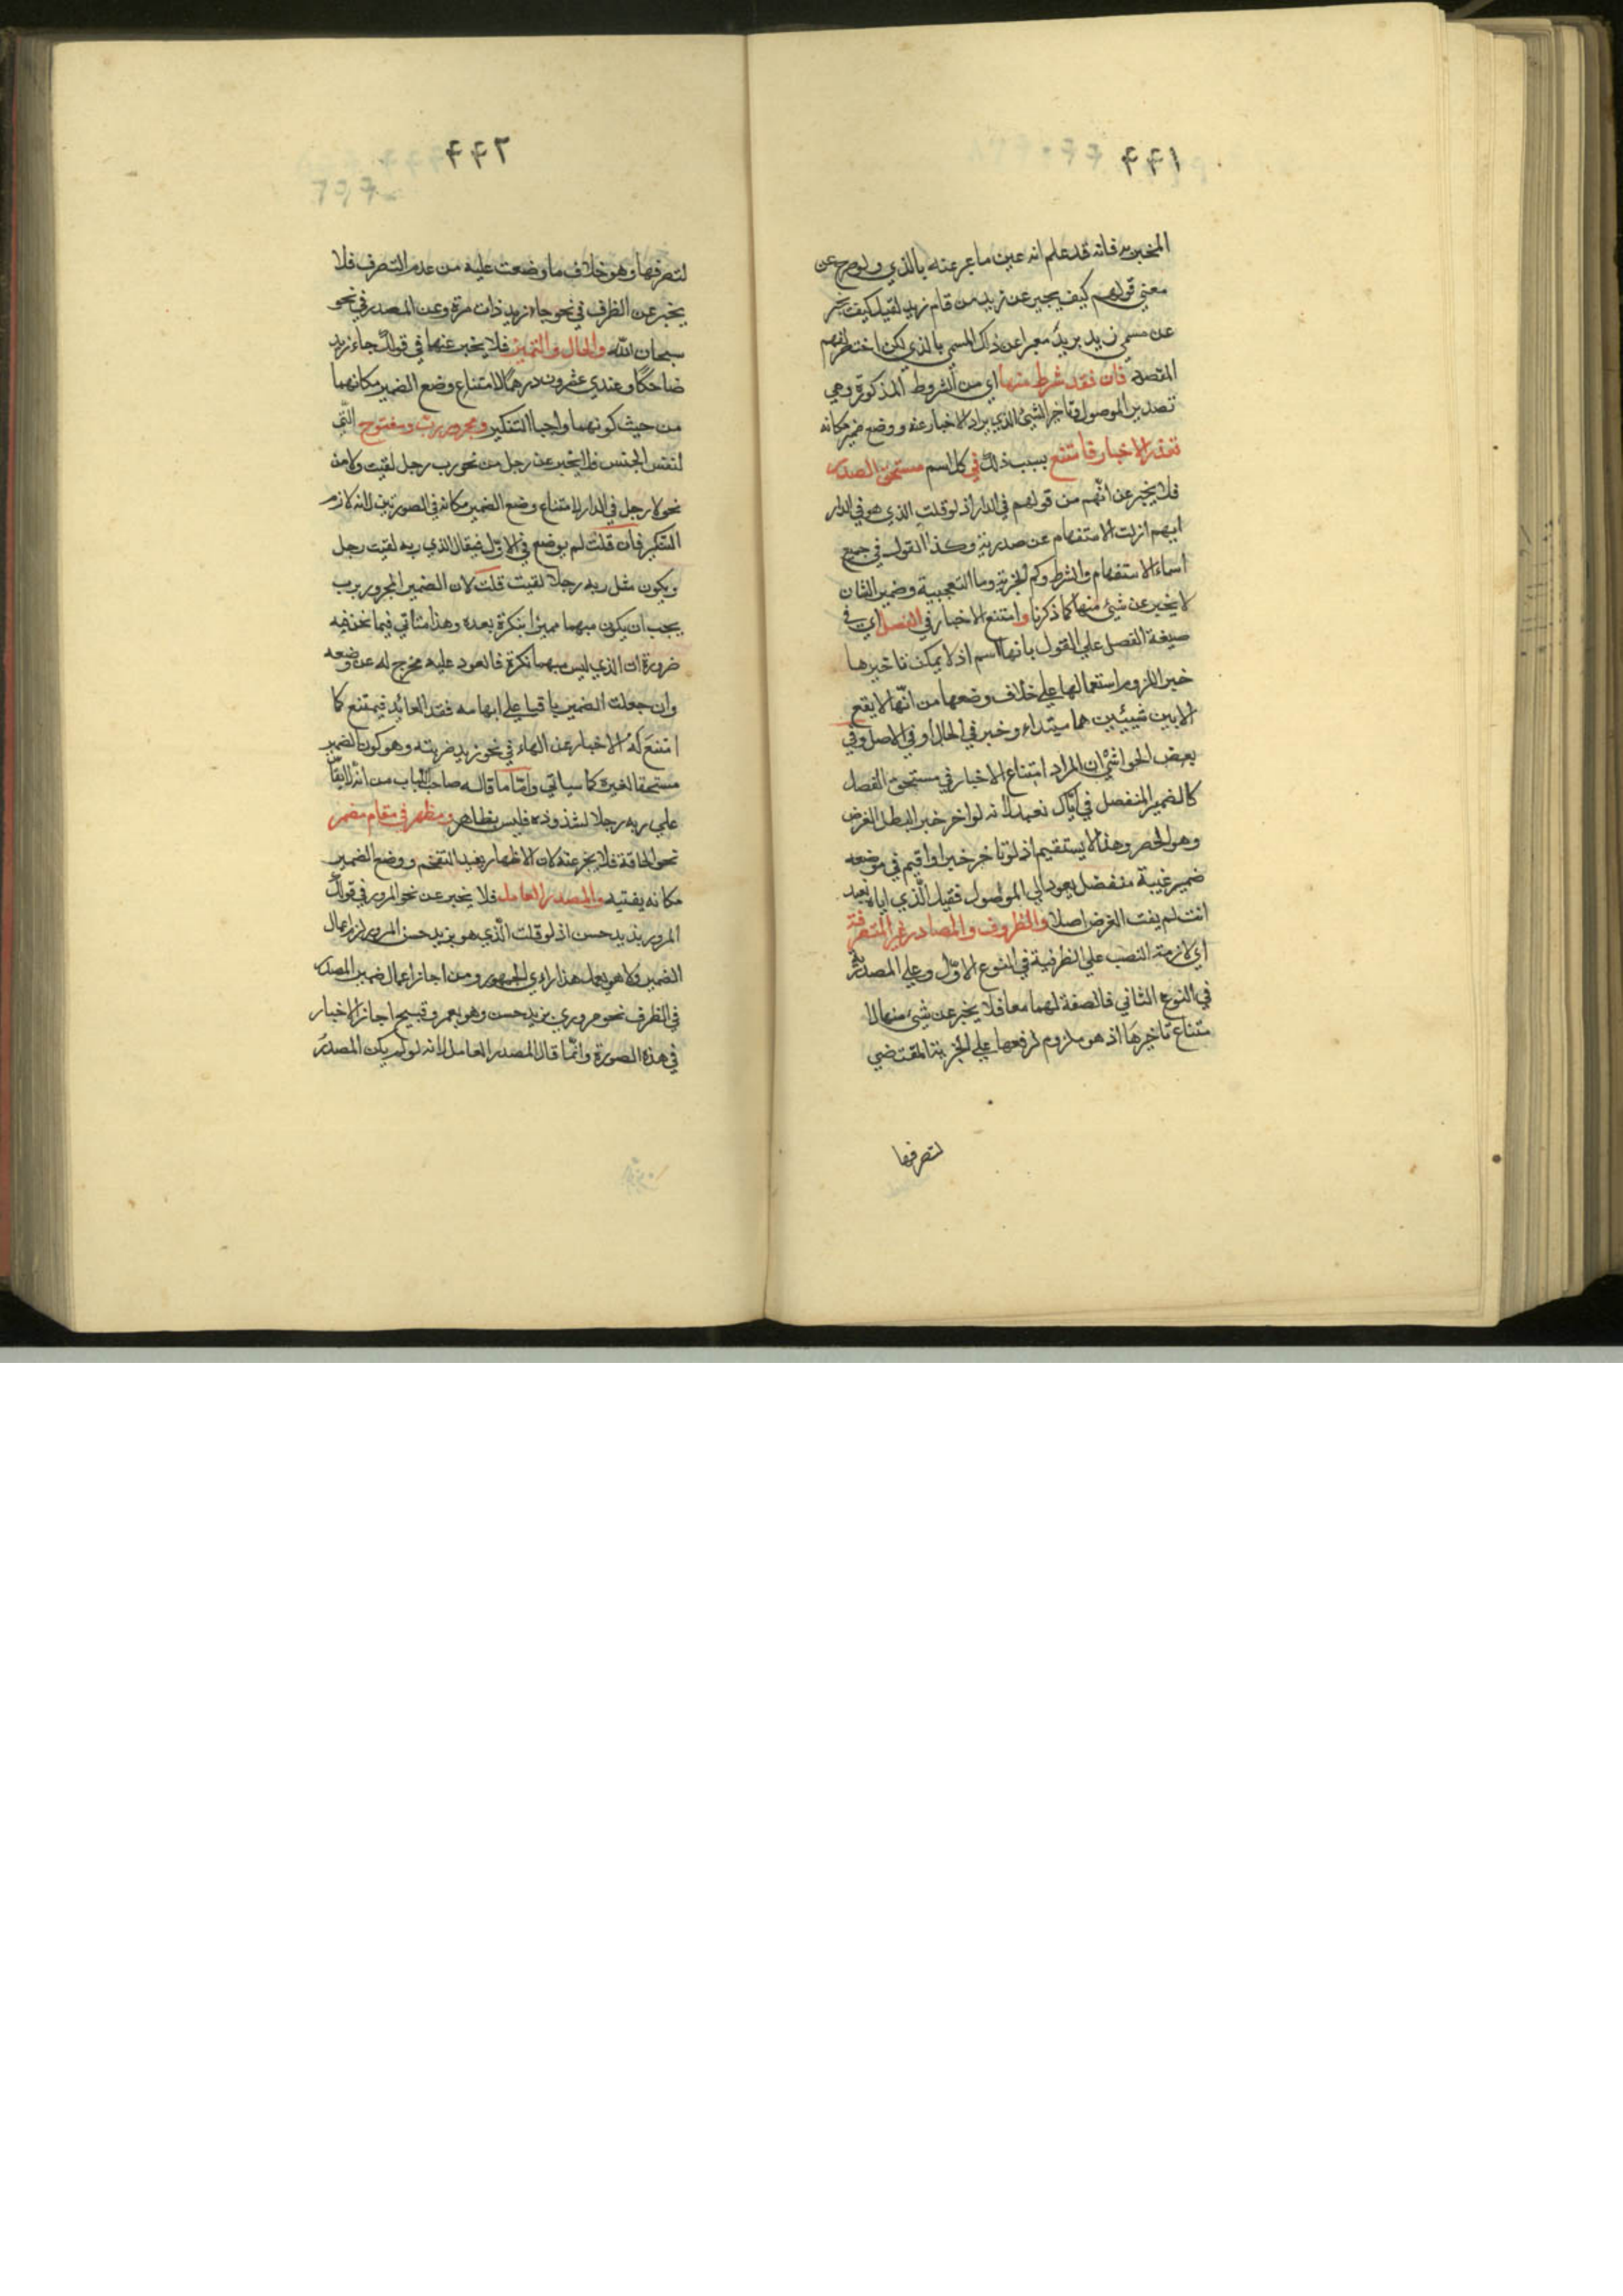 ٤٤١
المخبر به فانه قد علم انه عين ما عبر عنه بالذي ولو صرح عن
معني قولهم كيف يخبر عن زيد من قام زيد لقيل كيف يخبر
عن مسمي زيد بزيد معبرا عن ذاك المسمي بالذي لكن اختصر لفهم
المقصد فان فقد شرط منها اي من الشروط المذكورة وهي
تصدير الموصول وتاخر الشئ الذي يراد الاخبار عنه ووضع ضمير مكانه
تعذر الاخبار فامتنع بسبب ذلك في كل اسم مستحق الصدر
فلا يخبر عن ايهم من قولهم في الدار اذ لو قلت الذي هو في الدار
ايهم ازلت الاستفهام عن صدريته وكذا القول في جميع
اسماء الاستفهام والشرط وكم الخبرية وما التعجبية وضمير الشان
لا يخبر عن شئ منها كما ذكرنا وامتنع الاخبار في الفصل اي في
صيغة الفصل علي القول بانها اسم اذ لا يمكن تاخيرها
خبرا للزوم استعمالها علي خلاف وضعها من انها لا يقع
الا بين شيئين هما مبتداء وخبر في الحال او في الاصل وفي
بعض الحواشي ان المراد امتناع الاخبار في مستحق الفصل
كالضمير المنفصل في اياك نعبد لانه لو اخر خبرا لبطل الغرض
وهو الحصر وهذا لا يستقيم اذ لو تاخر خبرا واقيم في موضعه
ضمير غيبة منفصل يعود الي الموصول فقيل الذي اياه نعبد
انت لم يفت الغرض اصلا والظروف والمصادر غير المتصرفة
اي لازمة النصب علي الظرفية في النوع الاول وعلي المصدرية
في النوع الثاني فالصفة لهما معا فلا يخبر عن شئ منها لا
متناع تاخيرها اذ هو ملزوم لرفعها علي الخبرية المقتضي
لتصرفها
٤٤٢
لتصرفها وهو خلاف ما وضعت عليه من عدم التصرف فلا
يخبر عن الظرف في نحو جاء زيد ذات مرة وعن المصدر في نحو
سبحان الله والحال والتمييز فلا يخبر عنها في قولك جاء زيد
ضاحكا وعندي عشرون درهما لامتناع وضع الضمير مكانهما
من حيث كونهما واجبا التنكير ومجرور رب ومفتوح التي
لنفس الجنس فلا يخبر عن رجل من نحو رب رجل لقيت ولا من
نحو لا رجل في الدار لامتناع وضع الضمير مكانه في الصورتين لانه لازم
التنكير فان قلت لم يوضع في الاول فيقال الذي ربه لقيت رجل
ويكون مثل ربه رجلا لقيت قلت لان الضمير المجرور برب
يجب ان يكون مبهما مميزا بنكرة بعده وهذا متاتي فيما نحن فيه
ضرورة ان الذي ليس مبهما نكرة فالعود عليه مخرج له عن وضعه
وان جعلت الضمير باقيا علي ابهامه فقد العائد فيمتنع كا
امتنع له الاخبار عن الهاء في نحو زيد ضربته وهو كون الضمير
مستحقا لغيره كما سياتي واما ما قاله صاحب اللباب من انه لا يقاس
علي ربه رجلا لشذوذه فليس بظاهر ومظهر في مقام مضمر
نحو الحاقة فلا يخبر عنه لان الاظهار يفيد التفخم ووضع الضمير
مكانه يفتيه والمصدر العامل فلا يخبر عن نحو المرور في قولك
المرور بزيد حسن اذ لو قلت الذي هو بزيد حسن المرور لزم اعمال
الضمير ولا هو يعمل هذا راي الجمهور ومن اجاز اعمال ضمير المصدر
في الظرف نحو مروري بزيد حسن وهو بعمرو قبيح اجاز الاخبار
في هذه الصورة وانما قال المصدر العامل لانه لو لم يكن المصدر